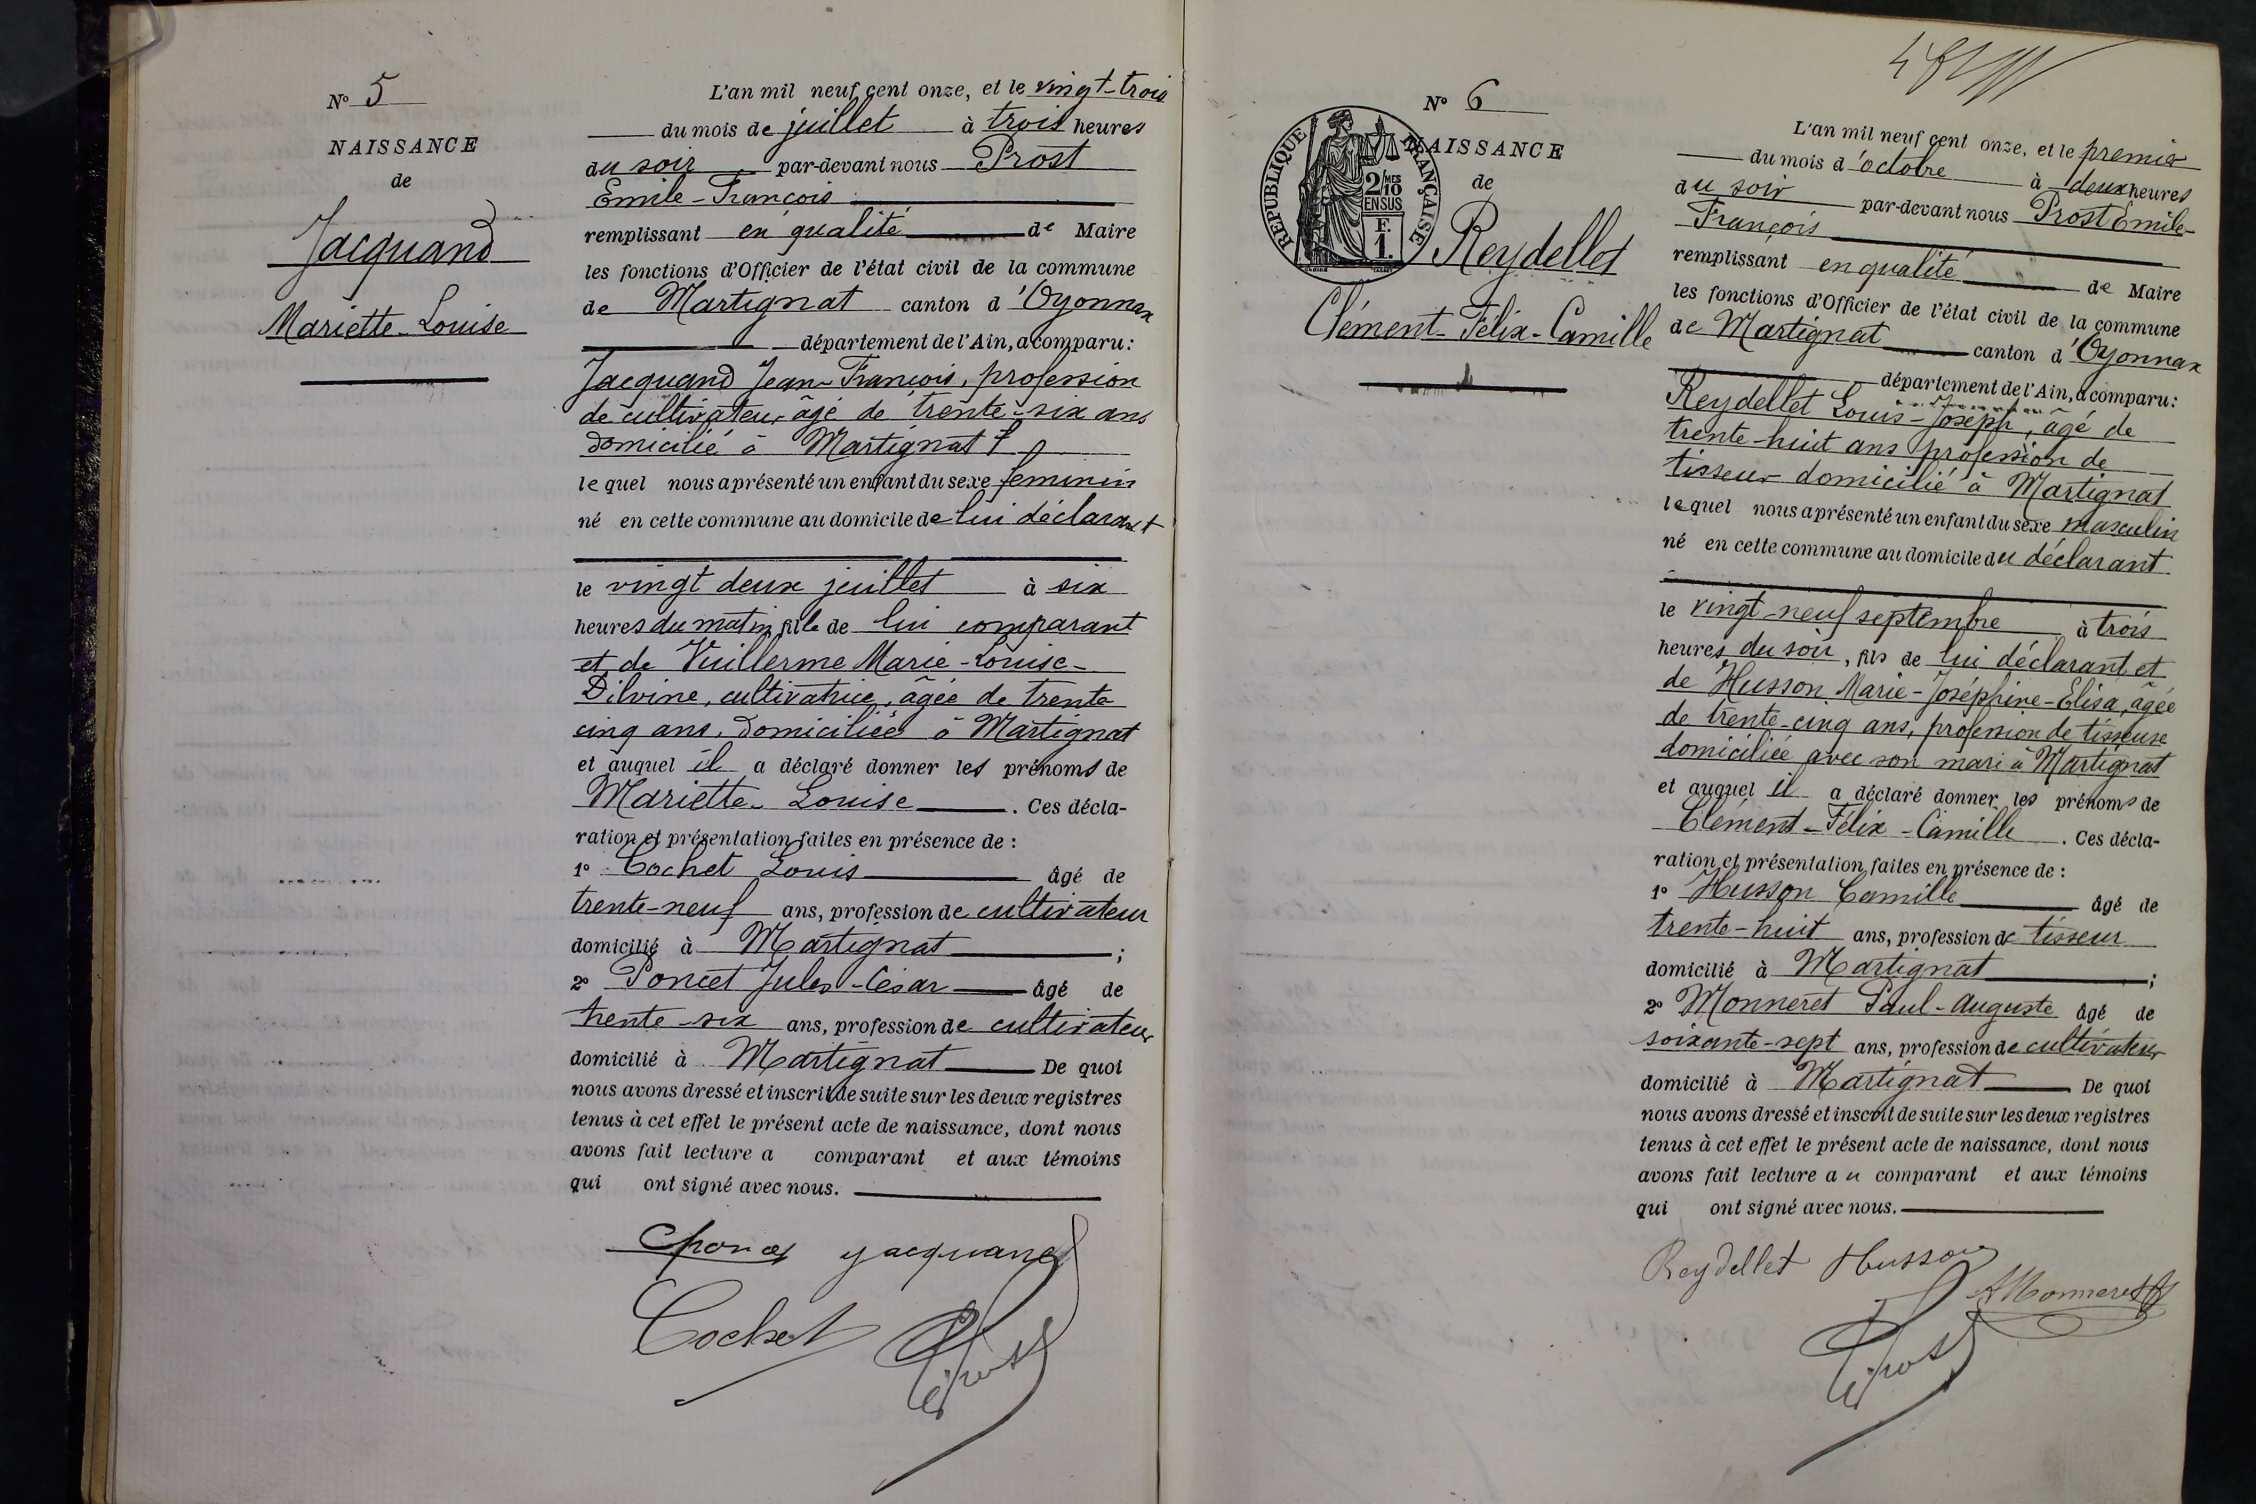 N° 5
NAISSANCE
de
Jacquand
Mariette-Louise
L'an mil neuf cent onze, et le vingt-trois
du mois de juillet à trois heures
du soir par-devant nous Prost
Emile-François
remplissant en qualité de Maire
les fonctions d'Officier de l'état civil de la commune
de Martignat canton d'Oyonnax
département de l'Ain, a comparu:
Jacquand Jean-François, profession
de cultivateur âgé de trente-six ans
domicilié à Martignat
lequel nous a présenté un enfant du sexe feminin
né en cette commune au domicile de lui déclarant
le vingt deux juillet à six
heures du matin, fille de lui comparant
et de Vuillerme Marie-Louise-
Dilvine, cultivatrice, âgée de trente
cinq ans, domiciliée à Martignat
et auquel il a déclaré donner les prénoms de
Mariette-Louise. Ces décla-
ration et présentation faites en présence de :
1° Cochet Louis âgé de
trente-neuf ans, profession de cultivateur
domicilié à Martignat ;
2° Poncet Jules-César âgé de
trente-six ans, profession de cultivateur
domicilié à Martignat De quoi
nous avons dressé et inscrit de suite sur les deux registres
tenus à cet effet le présent acte de naissance, dont nous
avons fait lecture a comparant et aux témoins
qui ont signé avec nous.
Poncet Jacquand
Cochet Prost
N° 6
RÉPUBLIQUE FRANÇAISE
2/10 MES
EN SUS
F.
1.
NAISSANCE
de
Reydellet
Clément-Félix-Camille
L'an mil neuf cent onze, et le premier
du mois d'octobre à deux heures
du soir par-devant nous Prost Emile-
François
remplissant en qualité de Maire
les fonctions d'Officier de l'état civil de la commune
de Martignat canton d'Oyonnax
département de l'Ain, a comparu:
Reydellet Louis-Joseph, âgé de
trente-huit ans profession de
tisseur domicilié à Martignat
lequel nous a présenté un enfant du sexe masculin
né en cette commune au domicile du déclarant
le vingt-neuf septembre à trois
heures du soir, fils de lui déclarant et
de Husson Marie-Joséphine-Elisa, âgée
de trente-cinq ans, profession de tisseuse
domiciliée avec son mari à Martignat
et auquel il a déclaré donner les prénoms de
Clément-Félix-Camille. Ces décla-
ration et présentation faites en présence de :
1° Husson Camille âgé de
trente-huit ans, profession de tisseur
domicilié à Martignat ;
2° Monneret Paul-Auguste âgé de
soixante-sept ans, profession de cultivateur
domicilié à Martignat De quoi
nous avons dressé et inscrit de suite sur les deux registres
tenus à cet effet le présent acte de naissance, dont nous
avons fait lecture au comparant et aux témoins
qui ont signé avec nous.
Reydellet Husson
A Monneret
Prost